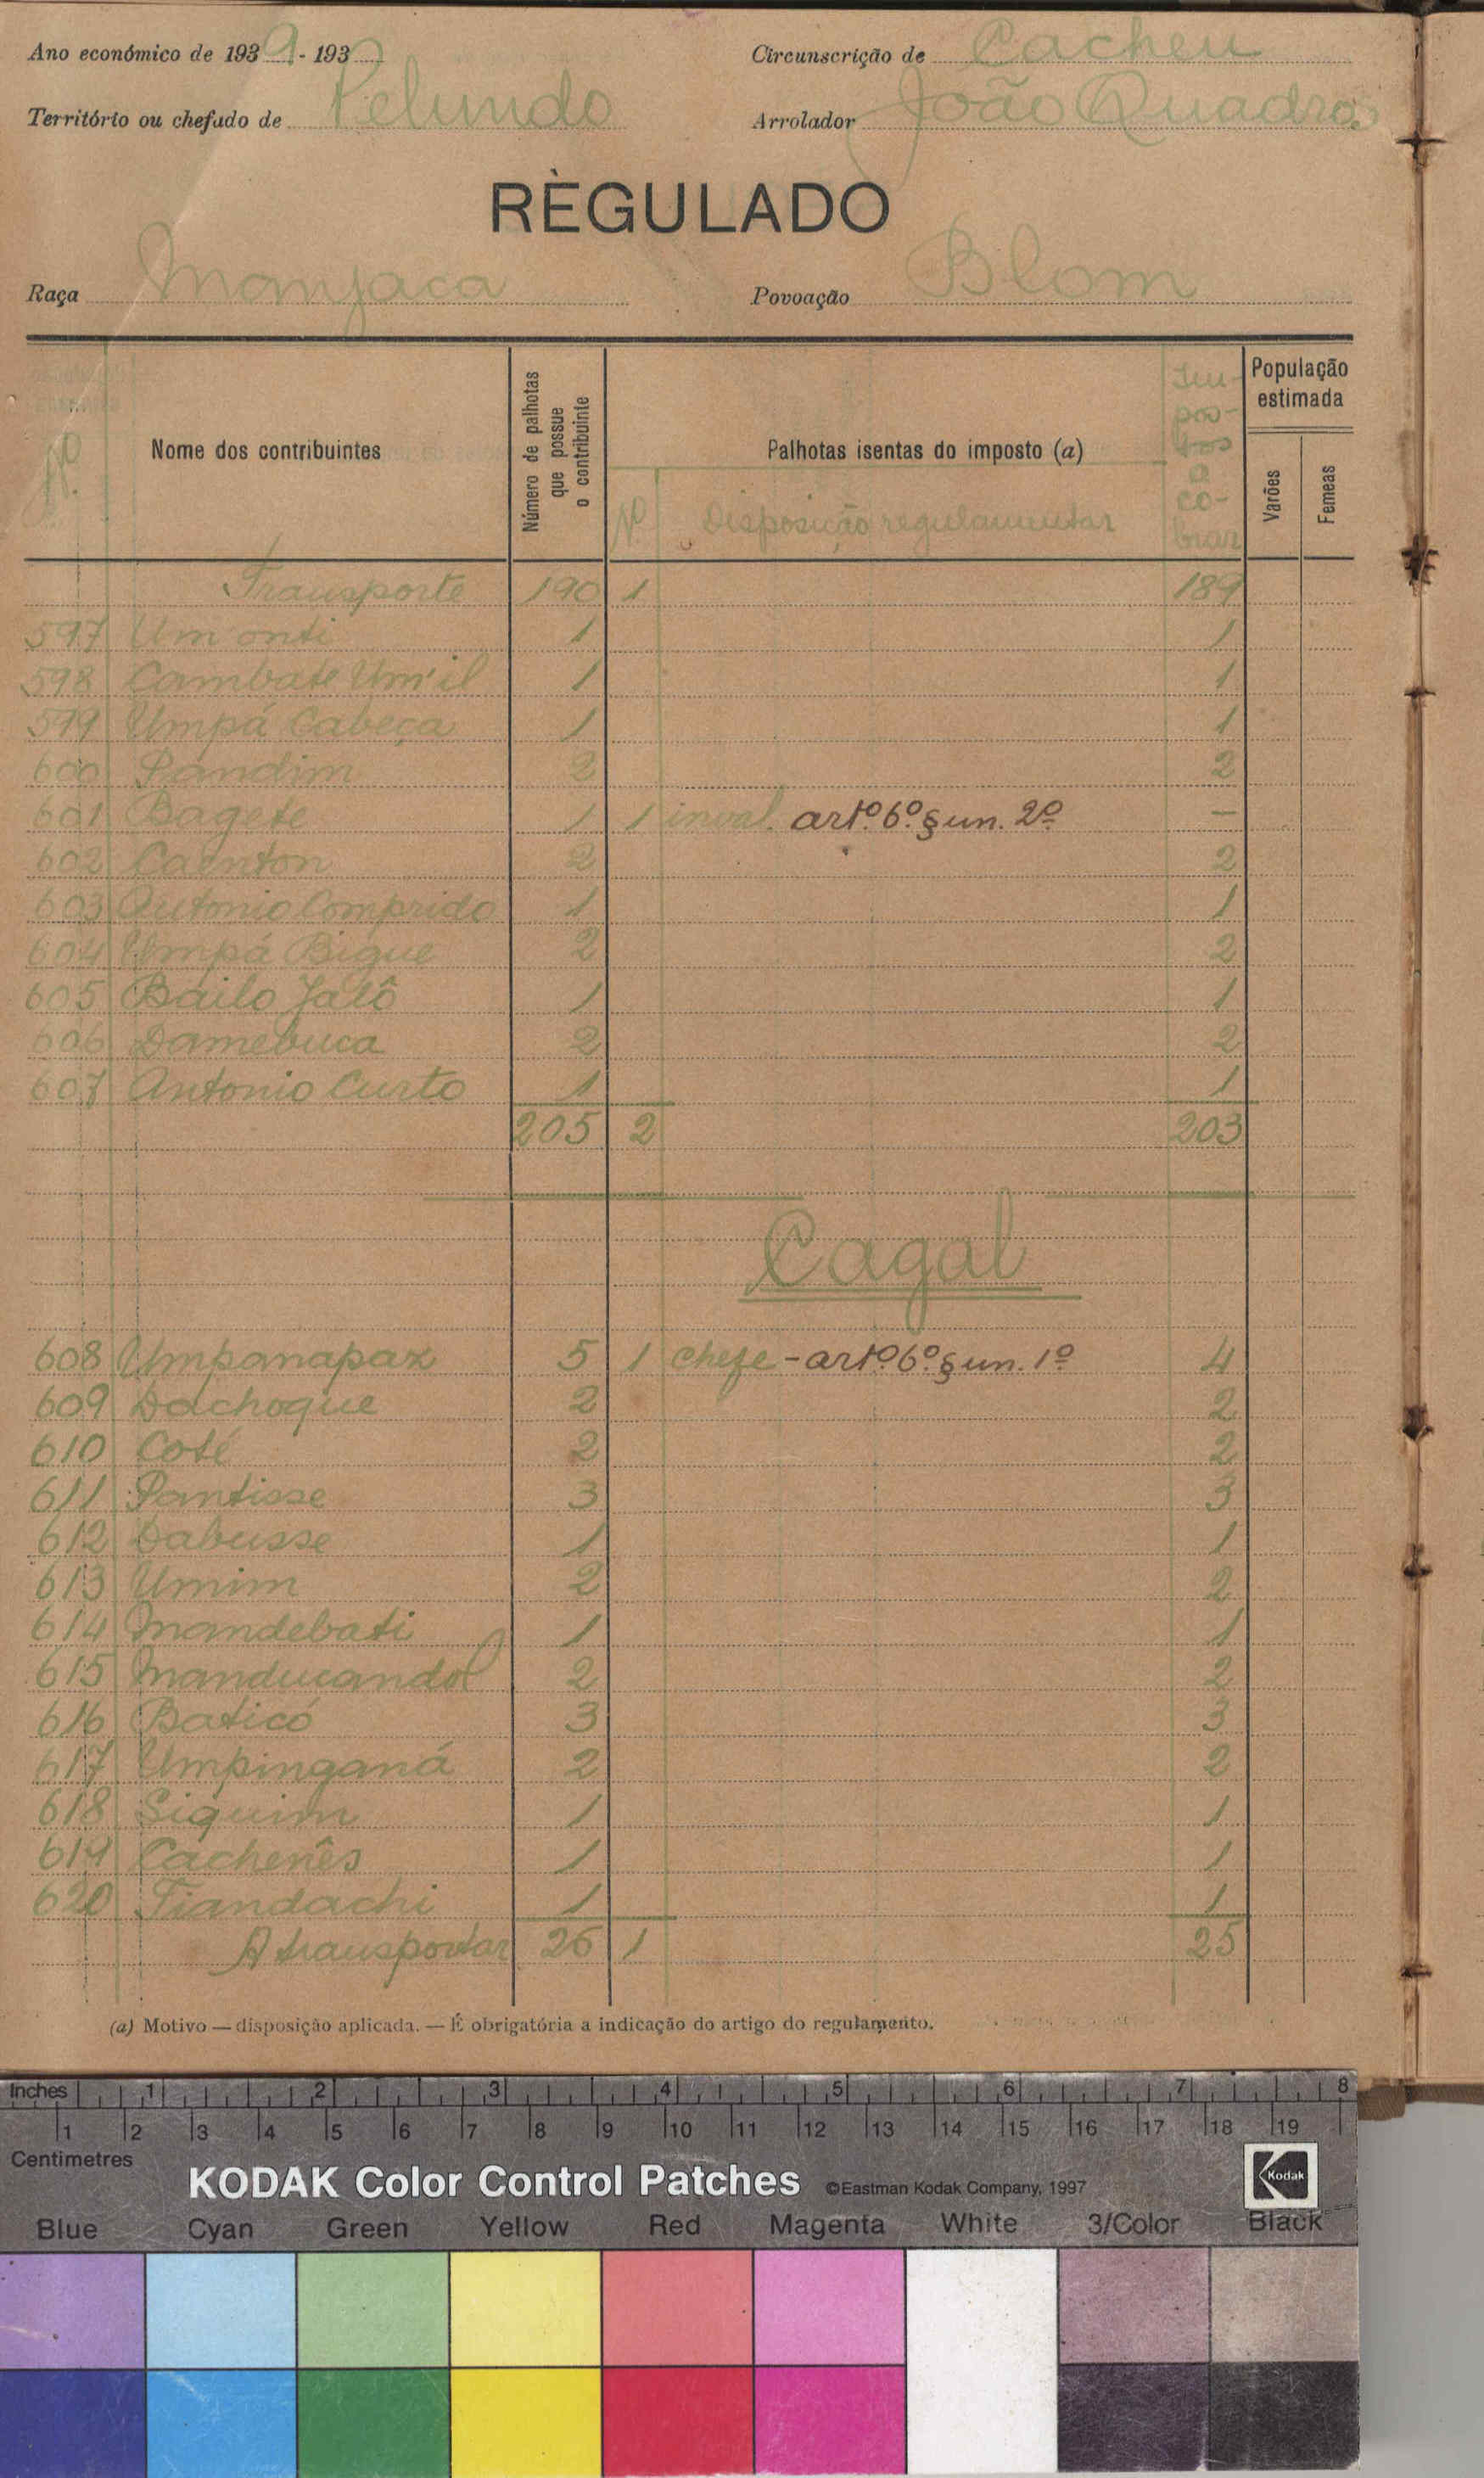 Ano económico de 1939 - 193
Circunscrição de Cacheu
Território ou chefado de Pelundo
Arrolador João Quadros
RÈGULADO
Raça Manjaca
Povoação Blom
Nº
Nome dos contribuintes
Número de palhotas que possue o contribuinte
Palhotas isentas do imposto (a)
Nº Disposição regulamentar
Im-
pos-
tos
a
co-
brar
População estimada
Varões
Femeas
Transporte 190 1 189
597 Um'onti 1 1
598 Cambate Um'il 1 1
599 Umpá Cabeça 1 1
600 Pandim 2 2
601 Bagete 1 1 inval. artº 6º § un. 2º —
602 Caenton 2 2
603 Antonio Comprido 1 1
604 Umpá Bigue 2 2
605 Bailo Jalô 1 1
606 Damebuca 2 2
607 Antonio Curto 1 1
205 2 203
Cagal
608 Umpanapax 5 1 chefe - artº 6º § un. 1º 4
609 Dachoque 2 2
610 Coté 2 2
611 Pantisse 3 3
612 Dabusse 1 1
613 Umim 2 2
614 Mandebati 1 1
615 Manducandol 2 2
616 Baticó 3 3
617 Umpinganá 2 2
618 Siquim 1 1
619 Cachenês 1 1
620 Tiandachi 1 1
A transportar 26 1 25
(a) Motivo — disposição aplicada. — É obrigatória a indicação do artigo do regulamento.
Inches 1 2 3 4 5 6 7 8
1 2 3 4 5 6 7 8 9 10 11 12 13 14 15 16 17 18 19
Centimetres
KODAK Color Control Patches ©Eastman Kodak Company, 1997 Kodak
Blue Cyan Green Yellow Red Magenta White 3/Color Black